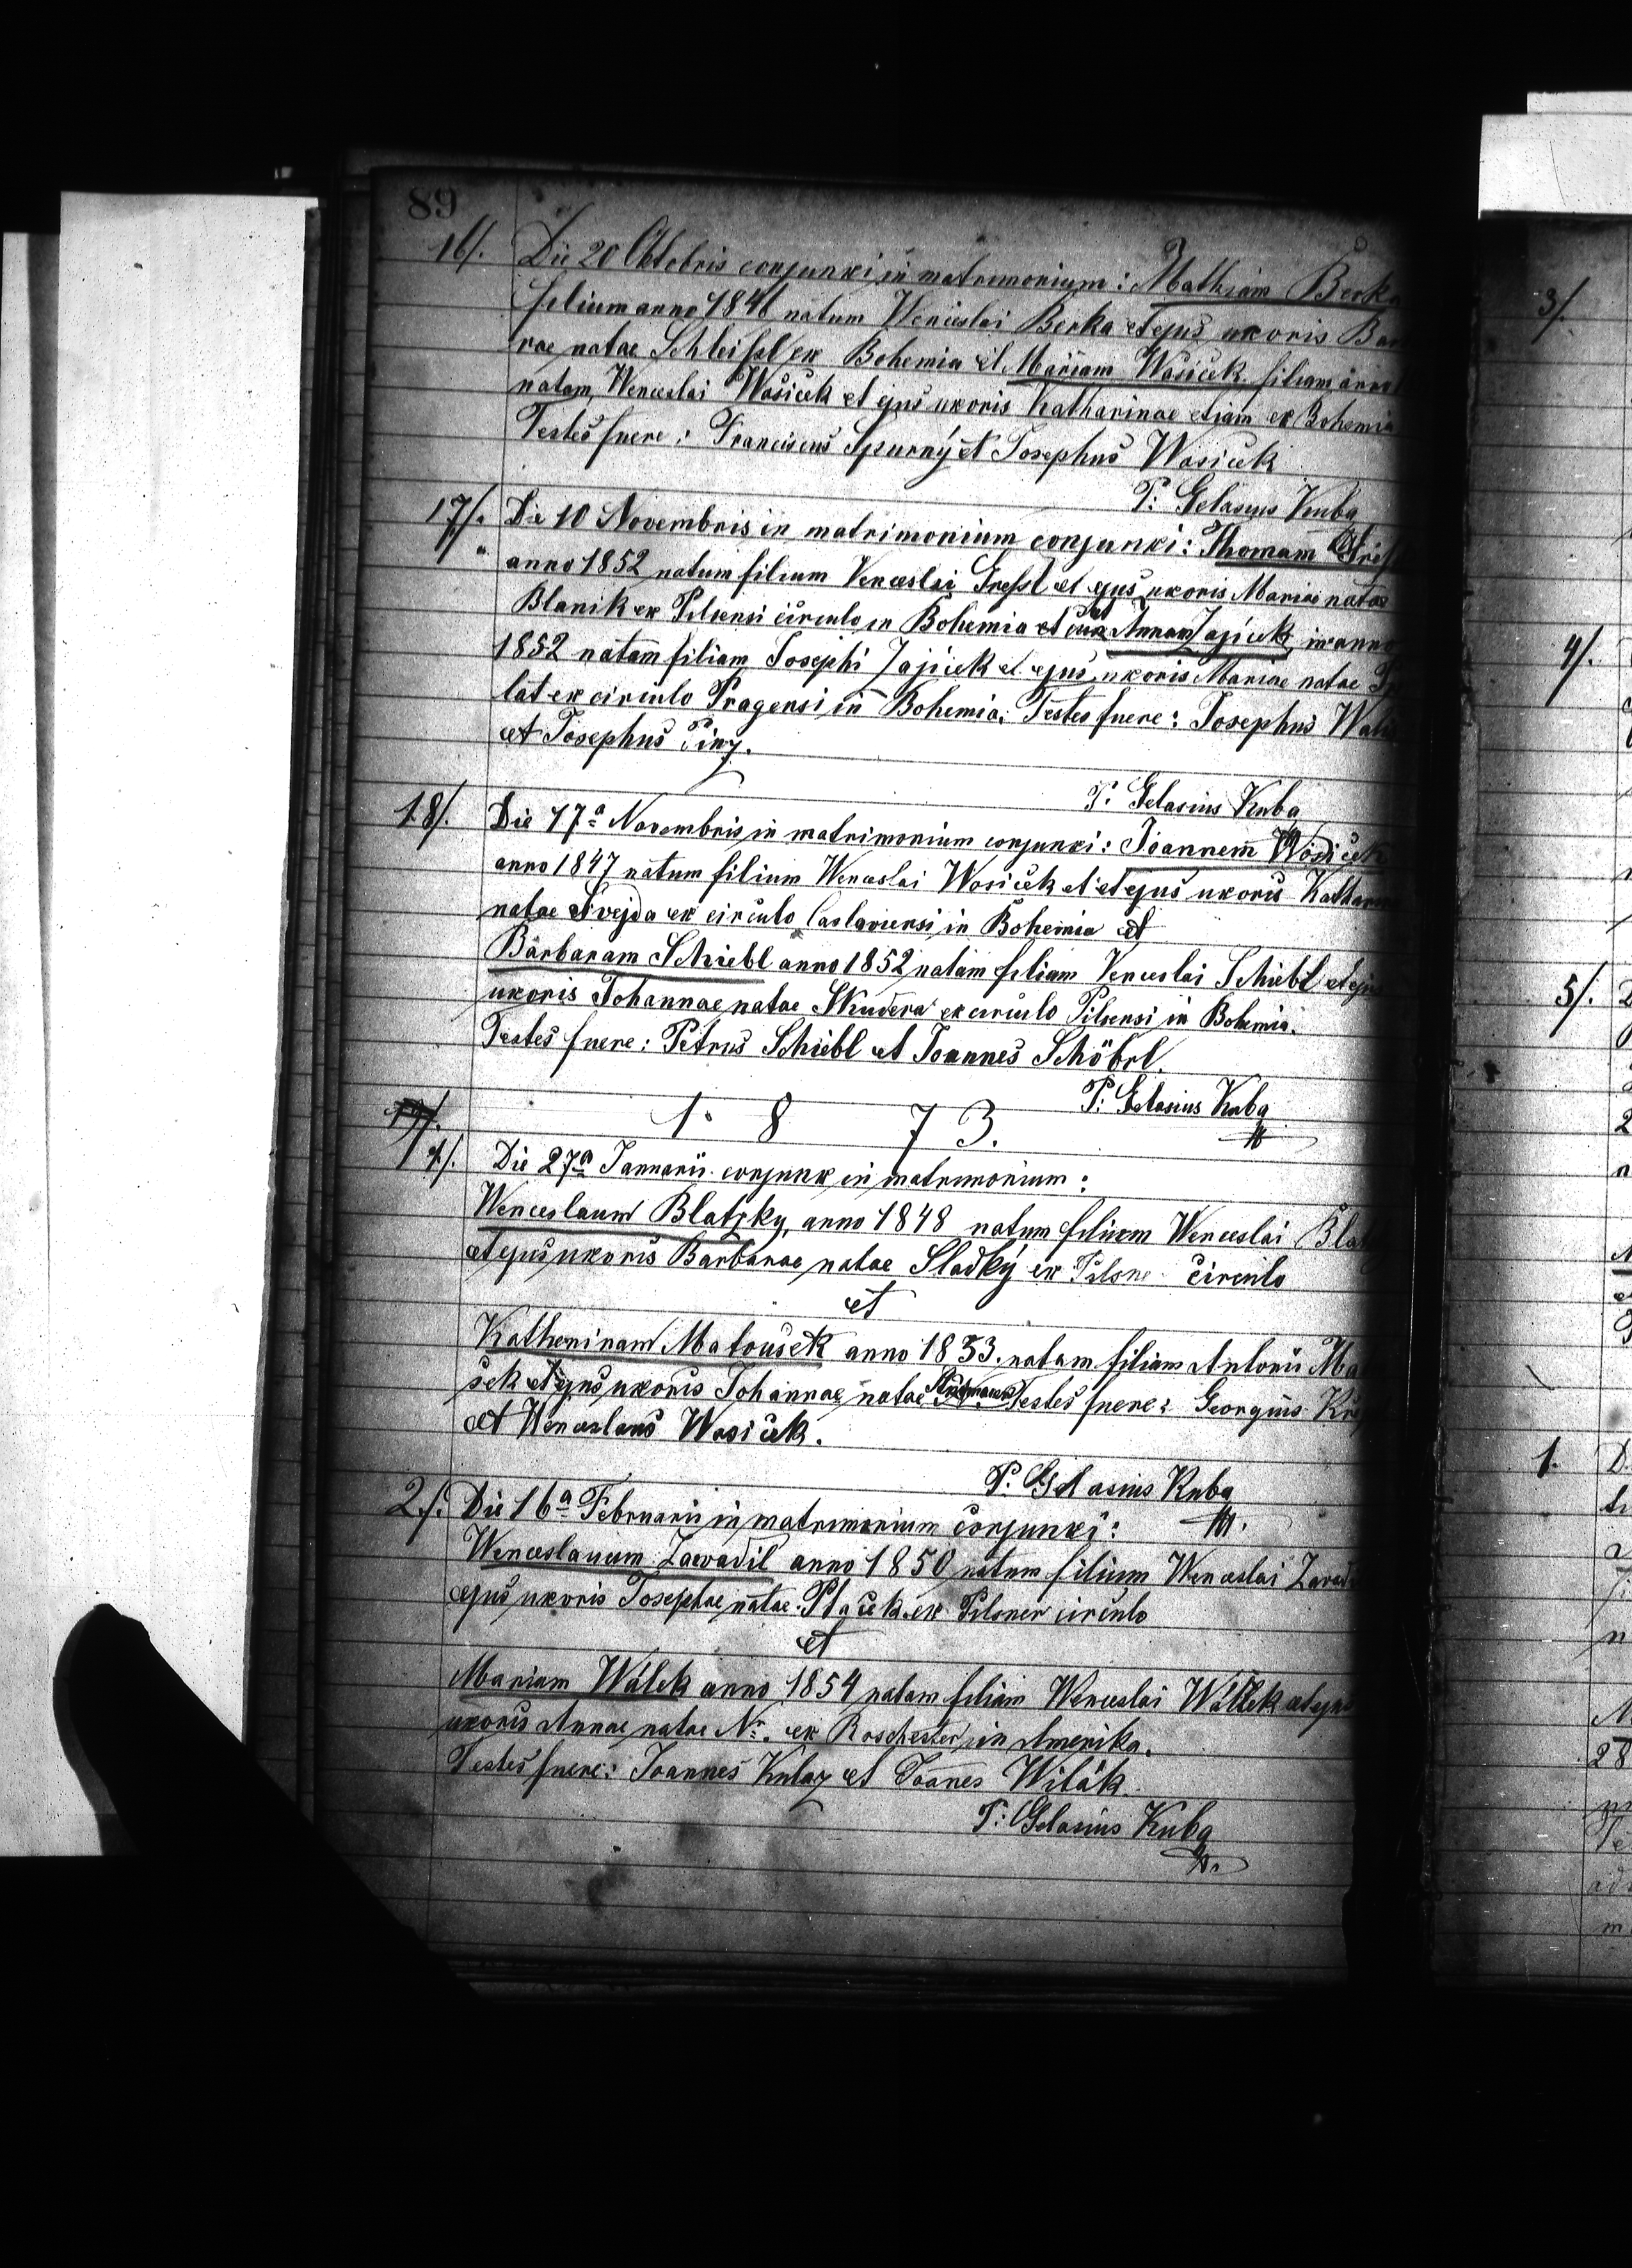 89
16/. Die 20 Oktobris conjunxi in matrimonium: Mathiam Berka
filium anno 1846 natum Wenceslai Berka et ejus uxoris Bar
rae natae Schleissl ex Bohemia et Mariam Wosiček filiam anno
natam, Wenceslai Wosiček et ejus uxoris Katharinae etiam ex Bohemia
Testes fuere: Franciscus Spurný et Josephus Wosiček
P. Gelasius Kuba
17/. Die 10 Novembris in matrimonium conjunxi: Thomam
anno 1852 natum filium Venceslai Gressl et ejus uxoris Mariae natae
Blanik ex Pilsensi circulo in Bohemia et Annam Zajiček in anno
1852 natam filiam Josephi Zajiček et ejus uxoris Mariae natae
lat ex circulo Pragensi in Bohemia. Testes fuere: Josephus
et Josephus
P. Gelasius Kuba
18/. Die 17a Novembris in matrimonium conjunxi: Joannem Wosiček
anno 1847 natum filium Wenceslai Wosiček et et ejus uxoris Kathar
natae Svejda ex circulo Caslaviensi in Bohemia et
Barbaram Schiebl anno 1852 natam filiam Venceslai Schiebl et ejus
uxoris Johannae natae Skudera ex circulo Pilsensi in Bohemia.
Testes fuere: Petrus Schiebl et Joannes Schöbrl.
P. Gelasius Kuba
1. 8 7 3.
1/. Die 27a Januarii conjunx in matrimonium:
Wenceslaum Blatzky, anno 1848 natum filium Wenceslai Blat
et ejus uxoris Barbarae natae Sladký ex Pilsne circulo
et
Katherinam Matoušek anno 1853. natam filiam Antonii Ma
šek et ejus uxoris Johannae natae Testes fuere: Georgius
et Wenceslaus Wosiček.
P. Gelasius Kuba
2/. Die 16a Februarii in matrimonium conjunxi:
Wenceslaum Zawadil anno 1850 natum filium Wenceslai Zawad
ejus uxoris Josephae natae Ptaček ex Pilsner circulo
et
Mariam Wálek anno 1854 natam filiam Wenceslai Wálek et ejus
uxoris Annae natae N. ex Roschester in Amerika.
Testes fuere: Joannes et Joanes Wilák.
P. Gelasius Kuba
3/.
4/.
5/.
1.
28